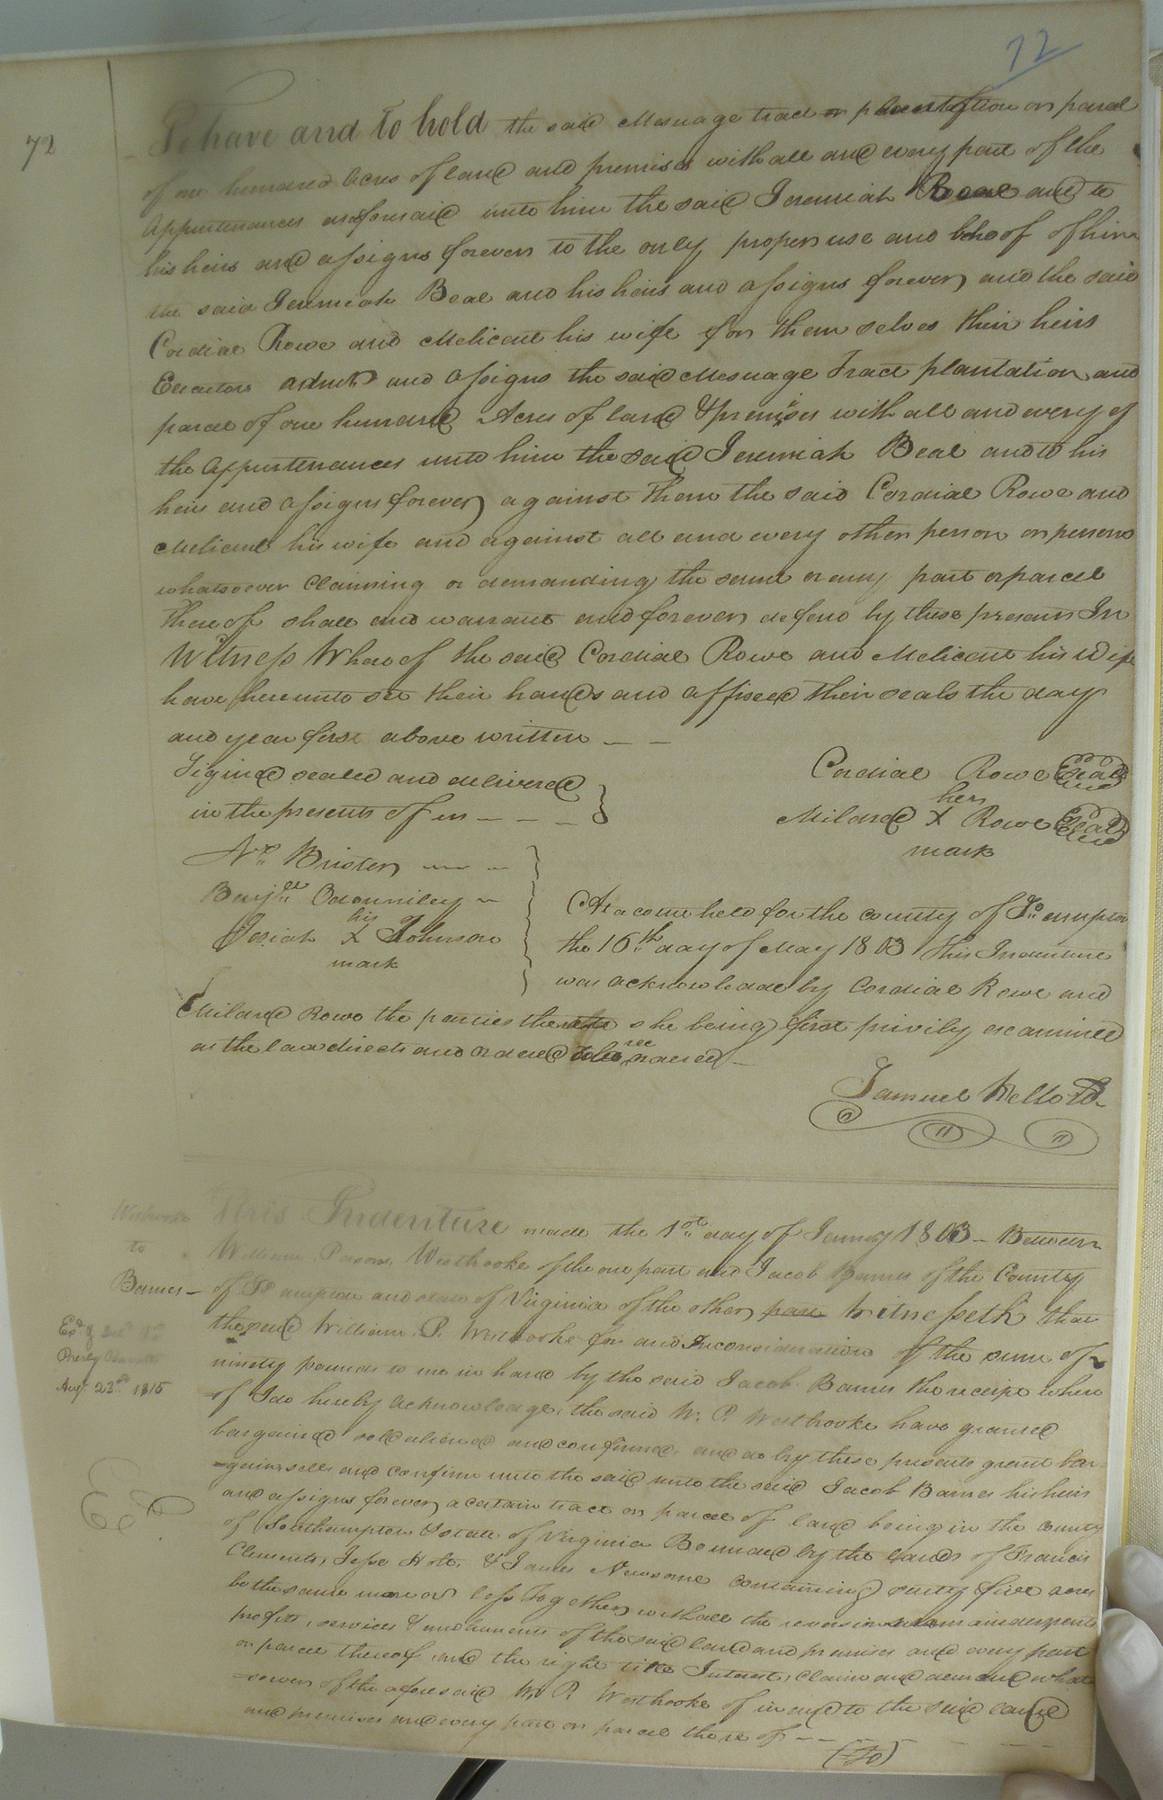 72
72
To have and to hold the said Mesuage tract or plantation or parcel
of one hundred Acres of land and premises with all and every part of the
Appurtenances as aforesaid unto him the said Jeremiah Beal and to
his heirs and assigns forever to the only proper use and behoof of him
the said Jeremiah Beal and his heirs and assigns forever and the said
Cordial Rowe and Melicent his wife for them selves their heirs
Executors admrs and assigns the said Mesuage Tract plantation and
parcel of one hundred Acres of land & premises with all and every of
the appurtenances unto him the said Jeremiah Beal and to his
heirs and assigns forever against them the said Cordial Rowe and
Melicent his wife and against all and every other person or persons
whatsoever Claiming or demanding the same or any part or parcel
thereof shall and warrant and forever defend by these presents In
Witness Whereof the said Cordial Rowe and Melicent his Wife
have hereunto set their hands and affixed their seals the day
and year first above written — —
Signed sealed and delivered
in the presents of us — — —
Cordial Rowe Seal
her
Mildred X Rowe Seal
mark
Brister
Josiah his X Johnson
mark
At a court held for the county of So.ampton
the 16th day of May 1803 This Indenture
was acknowledge by Cordial Rowe and
Mildred Rowe the parties thereto she being first privily examined
as the law directs and ordered to be recorded —
Samuel Kello
Westbrooke
to
Barnes —
Augt 23rd 1815
This Indenture made the 1st day of January 1803 — Between
William Parsons Westbrooke of the one part and Jacob Barnes of the County
of So ampton and state of Virginia of the other part Witnesseth that
the said William P. Westbrooke for and Inconsideration of the sum of
ninety pounds to me in hand by the said Jacob Barnes the receipt where
of I do hereby acknowledge, the said W. P. Westbrooke have granted
bargained sold aliened and confirmed and do by these presents grant bar
=gain sell and confirm unto the said unto the said Jacob Barnes his heirs
and assigns forever a certain tract or parcel of land being in the county
of Southampton & state of Virginia Bounded by the lands of Francis
Clements, Jesse Holt, & James Newsome containing sixty five acres
be the same more or less Together with all the reversions remainders rents
profits, services & emoluments of the said land and premises and every part
or parcel thereof and the right title Interest, Claim and demand what
=soever of the aforesaid W. P. Westbrooke of in and to the said land
and premises and every part or parcel there of — — —
(To)